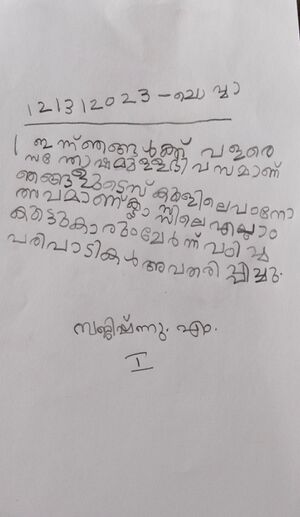 121312023-ചൊവ്വാ
ഇന്ന് ഞങ്ങൾക്ക് വളരെ
സന്തോഷമുള്ള ദിവസമാണ്
ഞങ്ങളുടെ സ്കൂളിലെ പഠനോ
ത്സവമാണ് ക്ലാസ്സിലെ എല്ലാം
കൂട്ടുകാരും ചേർന്ന് വഠിച്ച
പരിപാടികൾ അവതരിപ്പിച്ചു.
എം.
I